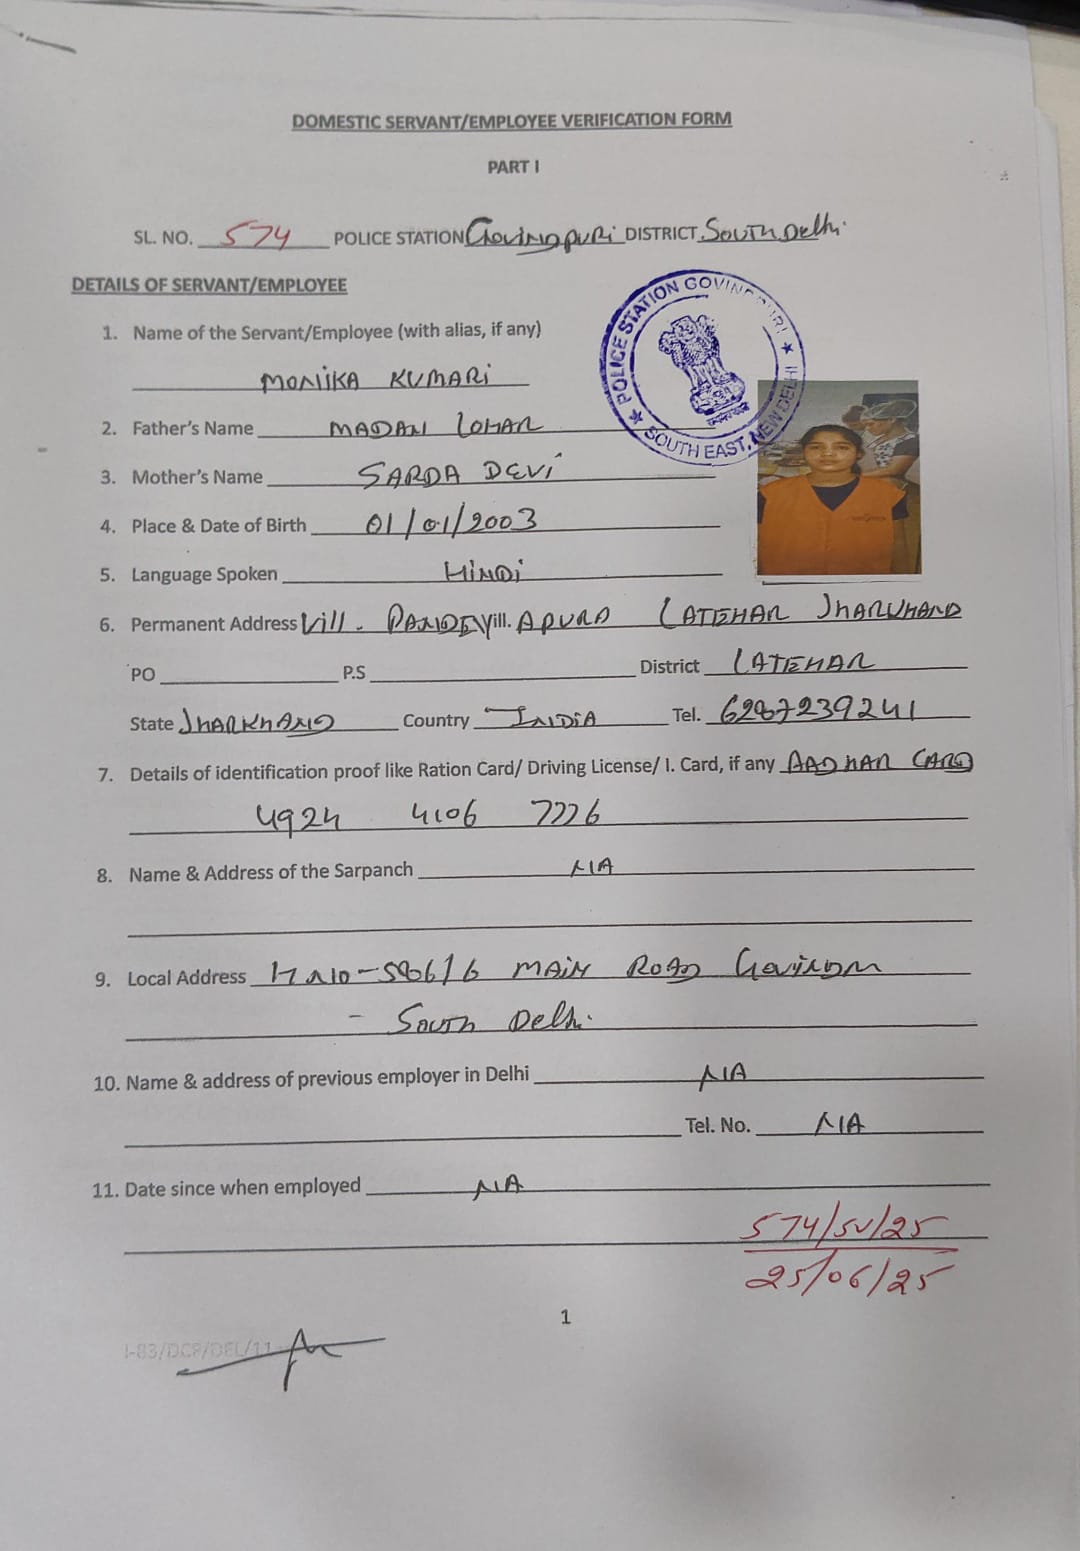 DOMESTIC SERVANT/EMPLOYEE VERIFICATION FORM
PART I
SL. NO. 574 POLICE STATION Govindpuri DISTRICT South Delhi
DETAILS OF SERVANT/EMPLOYEE
POLICE STATION GOVINDPURI
SOUTH EAST, NEW DELHI
1. Name of the Servant/Employee (with alias, if any)
MONIKA KUMARI
2. Father's Name MADAN LOHAR
3. Mother's Name SARDA DEVI
4. Place & Date of Birth 01/01/2003
5. Language Spoken HINDI
6. Permanent Address Vill. LATEHAR JHARKHAND
PO P.S District LATEHAR
State JHARKHAND Country INDIA Tel. 6287239241
7. Details of identification proof like Ration Card/ Driving License/ I. Card, if any AADHAR CARD
4924 4106 7226
8. Name & Address of the Sarpanch NIA
9. Local Address MAIN ROAD
- South Delhi.
10. Name & address of previous employer in Delhi NIA
Tel. No. NIA
11. Date since when employed NIA
574/SV/25
25/06/25
1
I-83/DCP/DEL/11